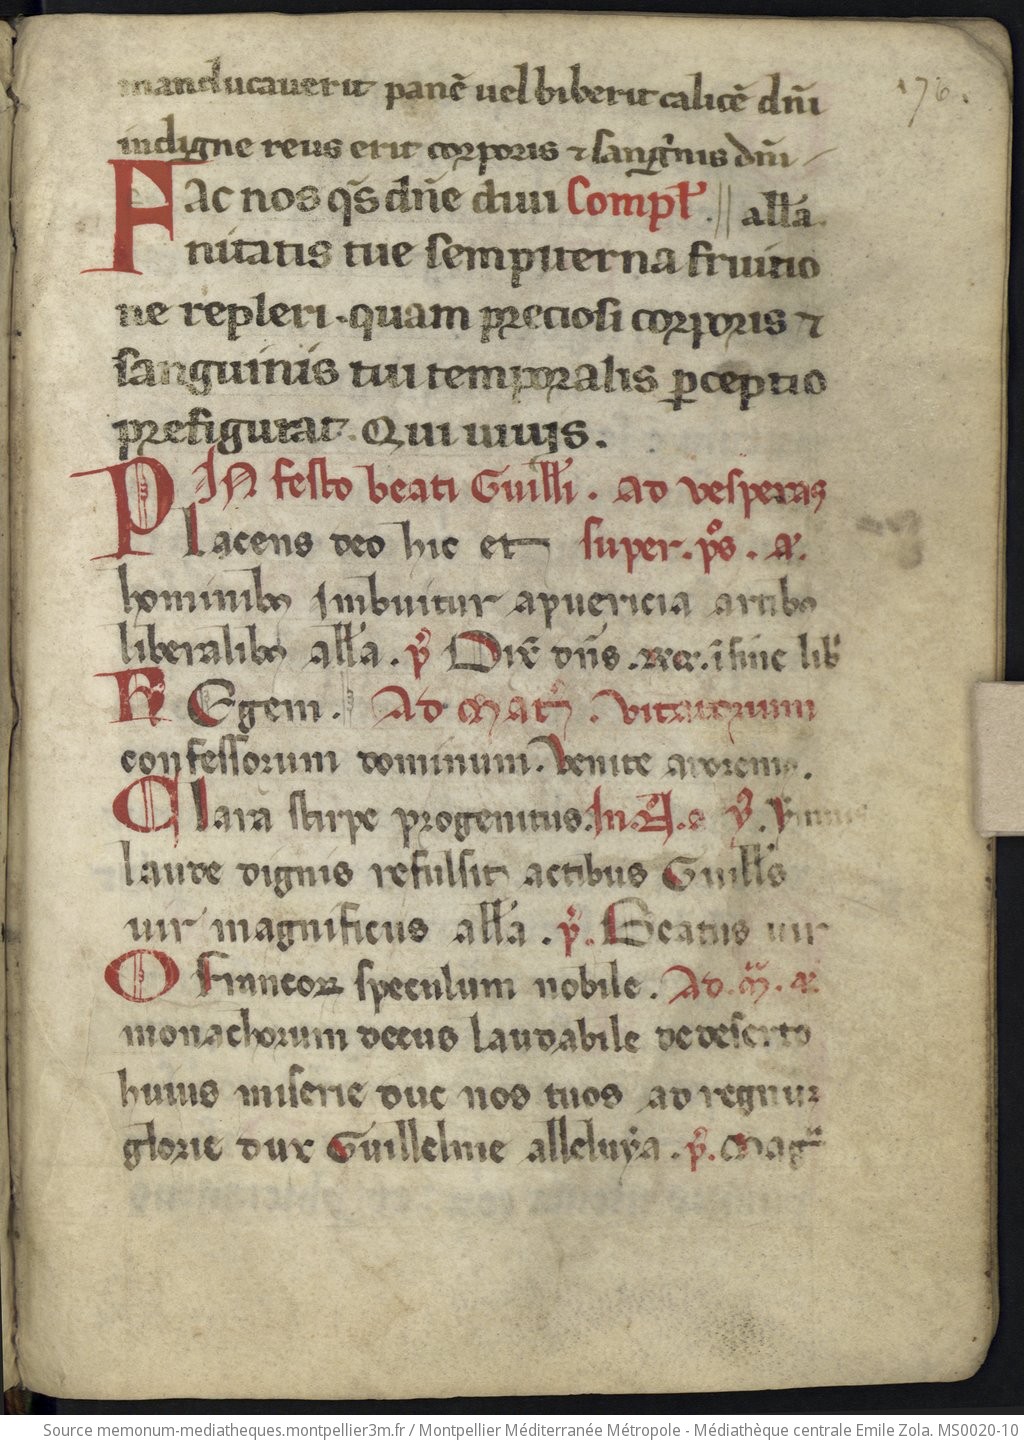 manducauerit panē uel biberit calicē dn̄i 176.
indigne reus erit corporis ⁊ sang'nis dn̄i
Fac nos q̄s dn̄e diui Compl'. || all'a.
nitatis tue sempiterna fruitio
ne repleri. quam preciosi corporis ⁊
sanguinis tui temporalis ꝑceptio
prefigurat. Qui uiuis.
IN festo beati Guill'i. Ad vesperas
Placens deo hic et super. ps. a.
hominibꝰ Imbuitur apuericia artibꝰ
liberalibꝰ all'a. p̄s Dix̄ dn̄s
REgem. Ad Mat'. Vitatorum
confessorum dominum. Venite adoremꝰ.
Clara stirpe progenitus. In
laude dignis refulsit actibus Guill's
uir magnificus all'a. p̄s. Beatus uir
O francoꝝ speculum nobile. Ad. M̄. a
monachorum decus laudabile de deserto
huius miserie duc nos tuos ad regnuꝫ
glorie dux Guillelme alleluya. p̄s. Mag̃
Source memonum-mediatheques.montpellier3m.fr / Montpellier Méditerranée Métropole - Médiathèque centrale Emile Zola. MS0020-10